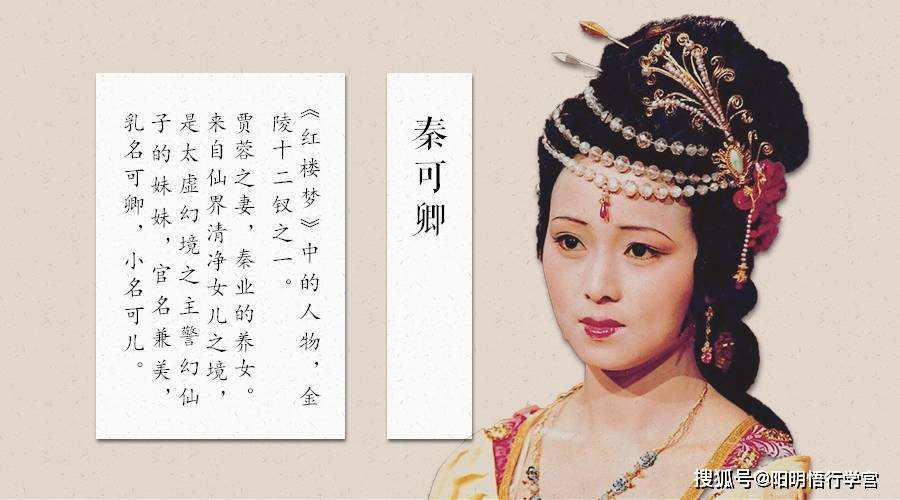 秦可卿
《红楼梦》中的人物，金
陵十二钗之一。
贾蓉之妻，秦业的养女。
来自仙界清净女儿之境，
是太虚幻境之主警幻仙
子的妹妹，官名兼美，
乳名可卿，小名可儿。
搜狐号@阳明悟行学宫